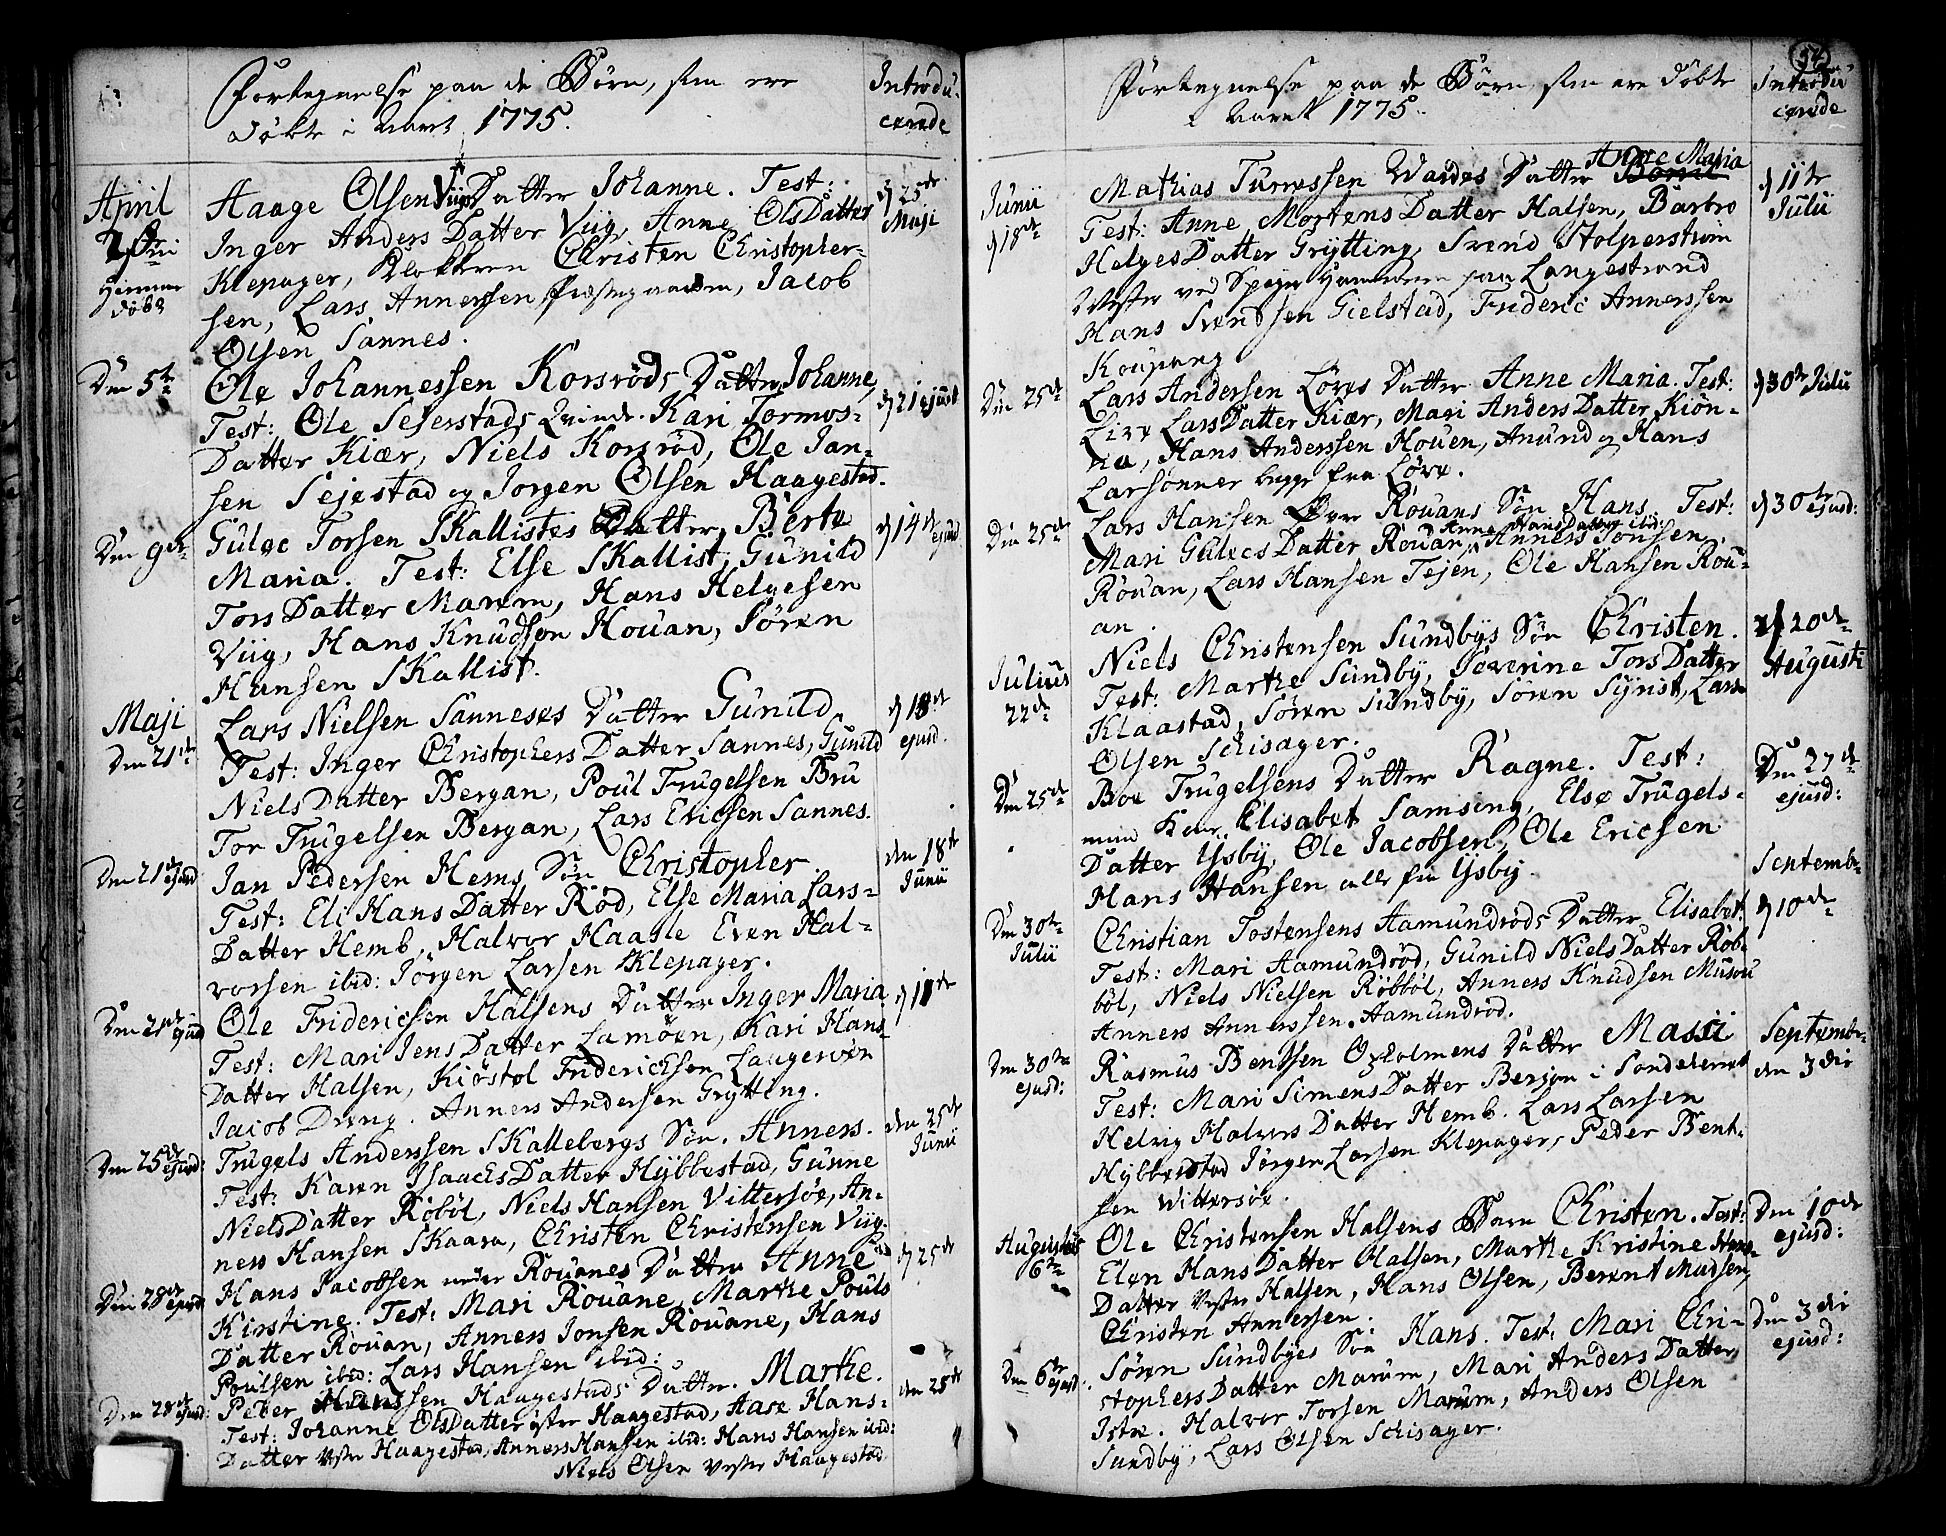 Fortegnelse paa de Børn, som ere
døbte i Aaret 1775.
Introdu-
cerede
April
2den
Hjemme
døbt
Aage Olsen Viigs Datter Johanne. Test:
Inger Anders Datter Viig, Anne Ols Datter
Klepager, Klokkeren Christen Christopher-
sen, Lars Annersen Præstegaarden, Jacob
Olsen Sannes.
d 25de
Maji
Den 5te
Ole Johannessen Korsrøds Datter Johanne,
Test: Ole Sejerstads Qvinde. Kari Tormos-
Datter Kiær, Niels Korsrød, Ole Jan-
sen Sejestad og Jørgen Olsen Haagestad.
d 21 ejusd
Den 9de
Guloc Torsen Skallistes Datter, Berte
Maria. Test: Else Skallist, Gunild
Tors Datter Marum, Hans Helgesen
Viig, Hans Knudsen Houan, Søren
Hansen Skallist.
d 14de ejusd
Maji
Den 21de
Lars Nielsen Sanneses Datter Gunild
Test: Inger Christophers Datter Sannes, Gunild
Niels Datter Bergan, Poul Trugelsen Bru
Tor Trugelsen Bergan, Lars Ericsen Sannes.
d 18de
ejusd.
Den 21de ejusd
Jan Pedersen Hems Søn Christopher
Test: Eli Hans Datter Rød, Else Maria Lars-
Datter Hemb, Halvor Haasle Even Hal-
vorsen ibid: Jørgen Larsen Klepager.
den 18de
Junii
Den 21de ejusd
Ole Fridericsen Halsens Datter Inger Maria
Test: Mari Jens Datter Lamøen, Kari Hans
Datter Halsen, Kiøstol Friderichsen Laagerøen
Jacob Dreng. Anners Andersen Grytting.
d 11te
Den 25de ejusd:
Trugels Anderssen Skallebergs Søn. Anners.
Test: Karen Isaachs Datter Hybbestad, Gunne
Niels Datter Røbøl, Niels Hansen Vittersøe, An-
ners Hansen Skaara, Christen Christensen Viig.
den 25de
Junii
Den 28de ejusd
Hans Jacobsen under Rouanes Datter Anne
Kirstine. Test: Mari Rouane, Marthe Pouls
Datter Rouan, Anners Jonsen Rouane, Hans
Poulsen ibid: Lars Hansen ibid:
d 25de
Den 28de ejusd:
Peder Hanssen Haagestads Datter. Marthe.
Test: Johanne Ols Datter øster Haagestad, Aase Hans-
Datter Vester Haagestad, Anners Hansen ibid: Hans Hansen ibid:
Niels Olsen Vester Haagestad
den 25de
Fortegnelse paa de Børn, som ere døbte
i Aaret 1775.
Introdu
cerede
Junii
d 18de
Anne Maria
Mathias Turressen Wardes Datter
Test: Anne Mortens Datter Halsen, Barbro
Helges Datter Grytting, Svend Stolperstrøm
Mester ved Hammeren paa Langestrand
Hans Svendsen Gielstad, Frideric Annerssen
Koupang
d 11te
Julii
Den 25de
Lars Andersen Løves Datter Anne Maria. Test:
Live Lars Datter Kiær, Mari Anders Datter Kiøn-
, Hans Anderssen Houen, Anund og Hans
Larsønner begge fra Løve.
d 30te Julii
Den 25de
Lars Hansen Rouans Søn Hans. Test:
Anne Hans Datter ibid:
Mari Gulecs Datter Rouan, Anners Jonsen,
Rouan, Lars Hansen Tejen, Ole Hansen Rou-
an.
d 30te ejusd:
Julius
22de
Niels Christensen Sundbys Søn Christen.
Test: Marthe Sundby, Severine Tors Datter
Klaastad, Søren Sundby, Søren Synist, Lars
Olsen Schisager.
d 20de
Augusti
Den 25de
Boe Trugelsens Datter Ragne. Test:
Elisabet Samsing, Else Trugels-
Datter Ysby, Ole Jacobsen, Ole Ericsen
Hans Hansen alle fra Ysby.
Den 27de
ejusd:
Den 30te
Julii
Christian Tostensens Aamundrøds Datter Elisabet:
Test: Mari Aamundrød, Gunild Niels Datter Røb-
bøl, Niels Nielsen Røbbøl, Anners Knudsen Musou
Anners Annerssen Aamundrød.
Septembr
d 10de
Den 30te
ejusd:
Rasmus Bentsen Oxholmens Datter Massi
Test: Mari Simens Datter Bergan i Sandeherret
Helvig Halvors Datter Hemb. Lars Larsen
Hybbestad Jørgen Larsen Klepager, Peder Bent-
sen Wittersøe.
Septembr
den 3die
Augustus
6te
Ole Christensen Halsens Barn Christen. Test:
Elen Hans Datter Halsen, Marthe Kristine Hans-
Datter Vestre Halsen, Hans Olsen, Berent Madsen,
Christen Annersen.
Den 10de
ejusd:
Den 6te ejusd.
Søren Sundbyes Søn Hans. Test: Mari Chri-
stophers Datter Marum, Mari Anders Datter
Istre. Halvor Torsen Marum, Anders Olsen
Sundby, Lars Olsen Schisager.
Den 3die
ejusd: